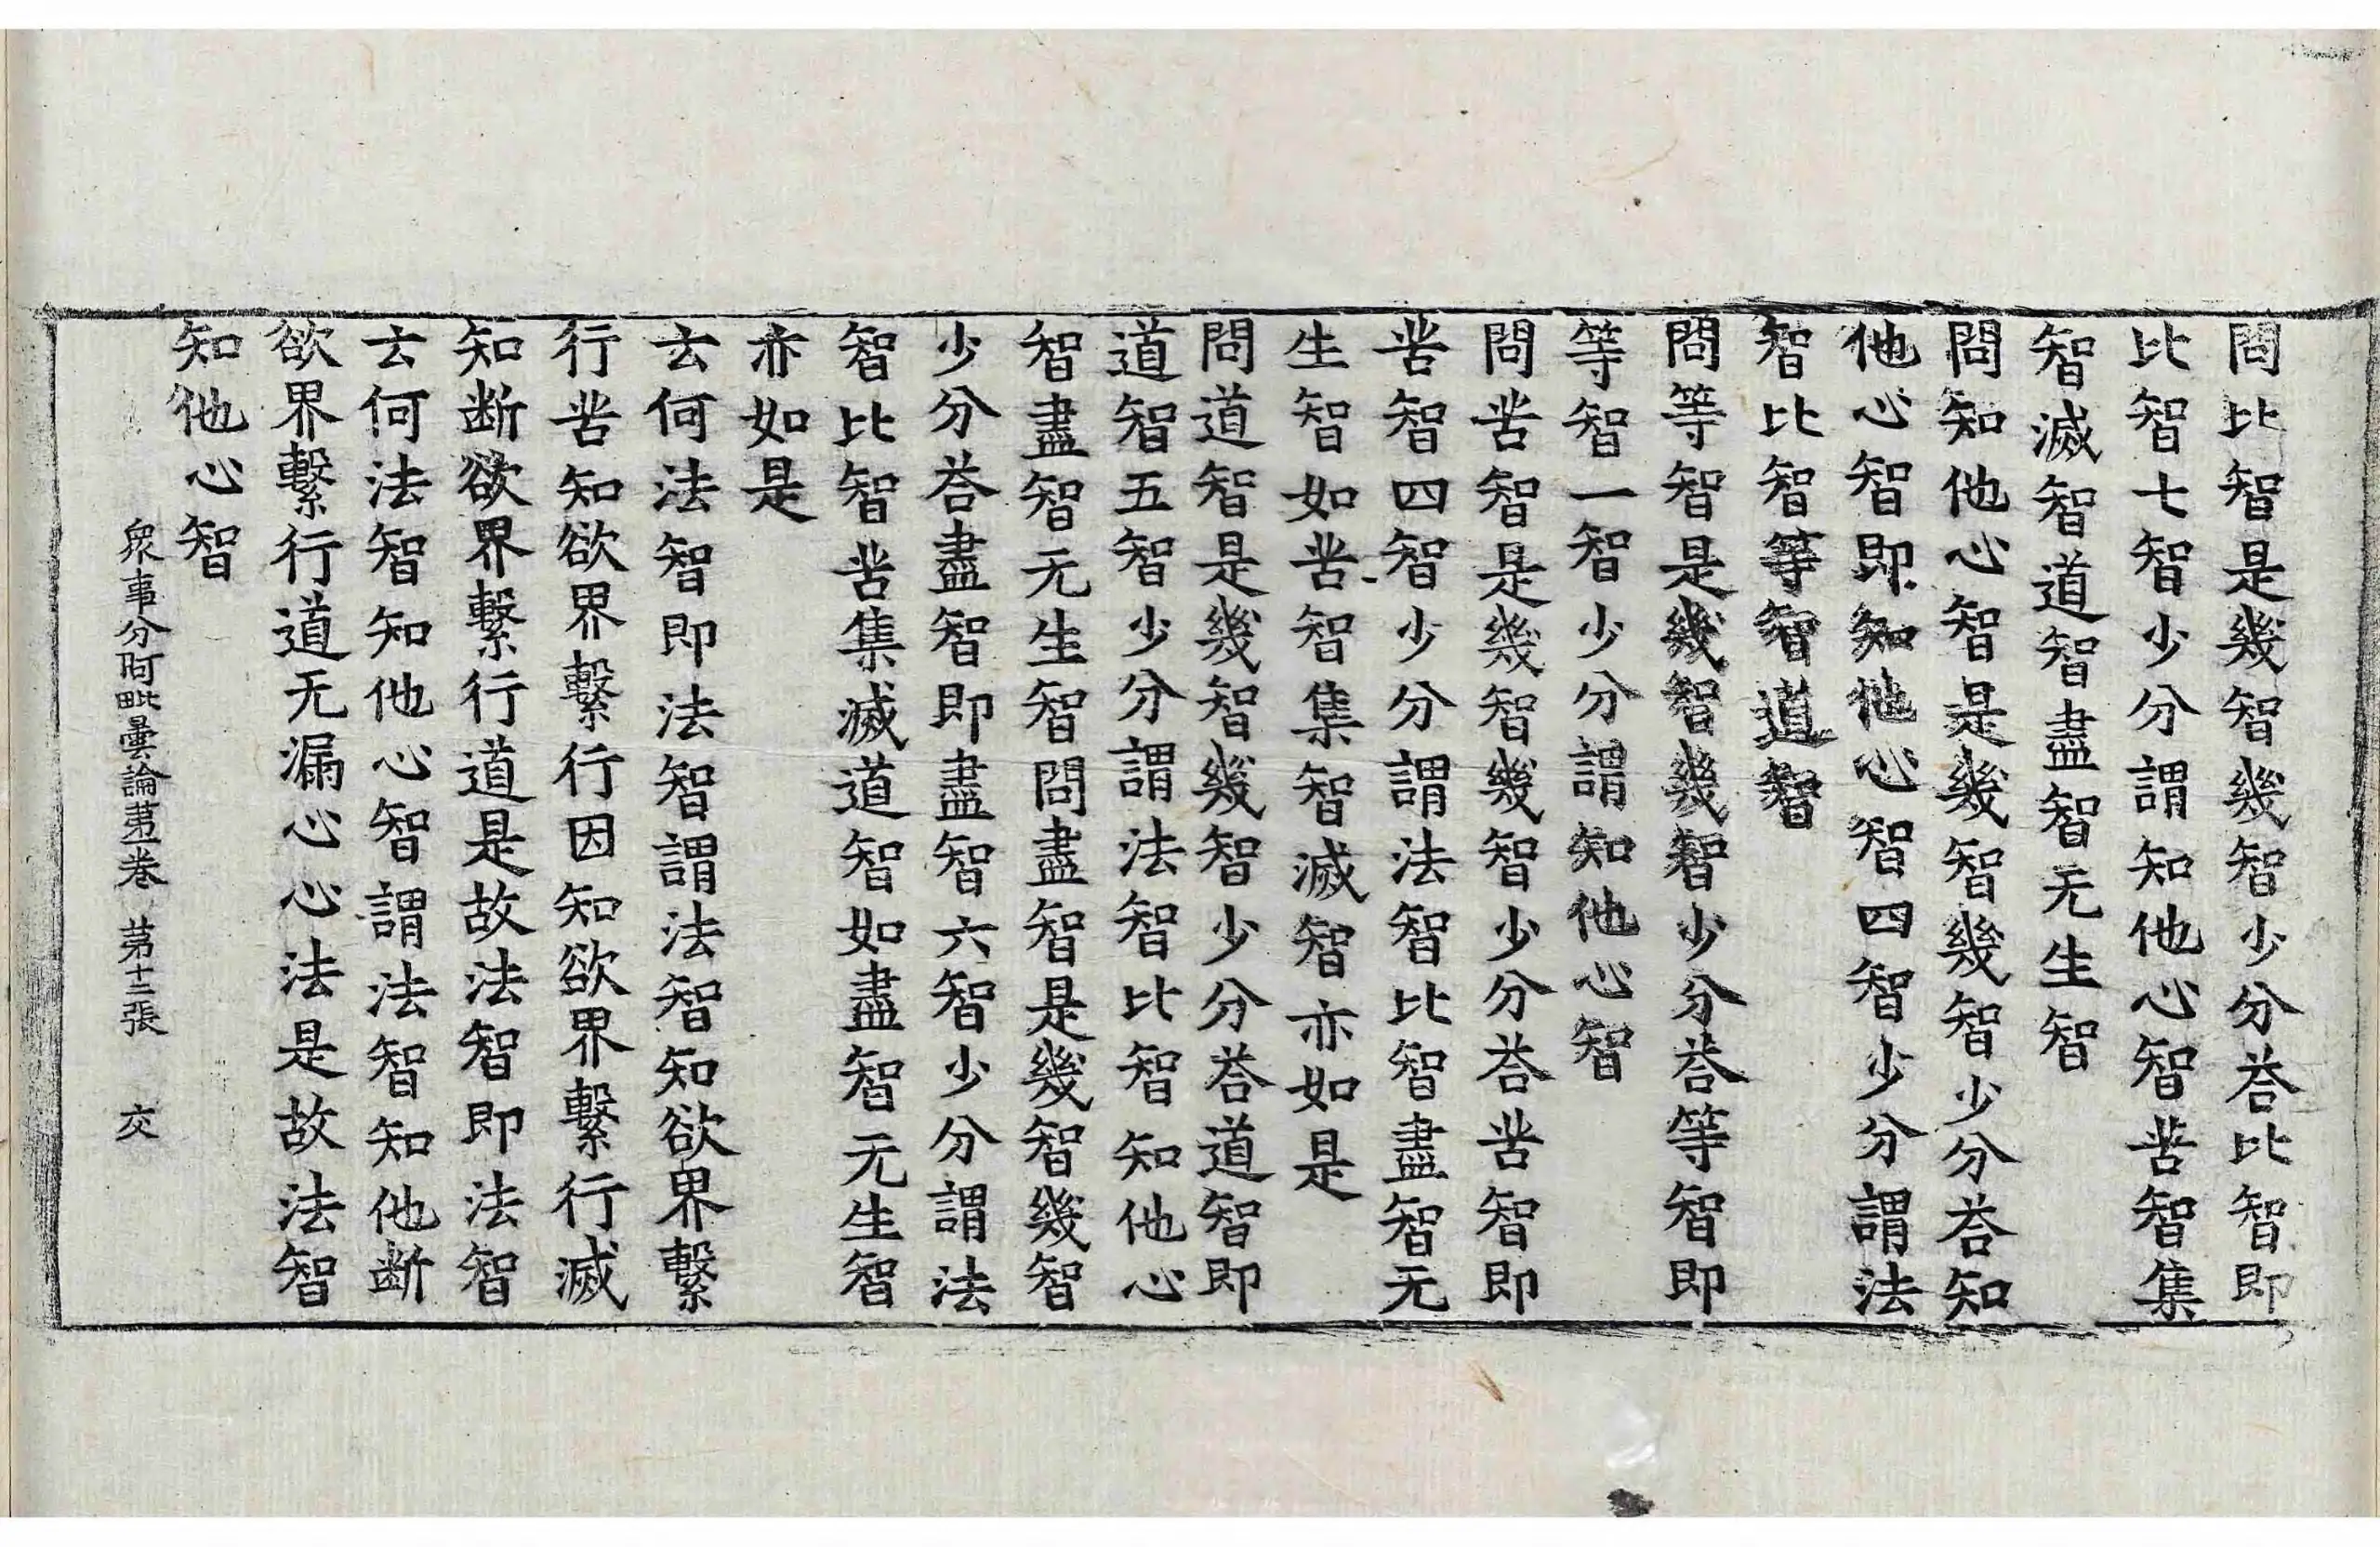 問比智是幾智幾智少分荅比智即
比智七智少分謂知他心智苦智集
智滅智道智盡智无生智
問知他心智是幾智幾智少分荅知
他心智即知他心智四智少分謂法
智比智等智道智
問等智是幾智幾智少分荅等智即
等智一智少分謂知他心智
問苦智是幾智幾智少分荅苦智即
苦智四智少分謂法智比智盡智无
生智如苦智集智滅智亦如是
問道智是幾智幾智少分荅道智即
道智五智少分謂法智比智知他心
智盡智无生智問盡智是幾智幾智
少分荅盡智即盡智六智少分謂法
智比智苦集滅道智如盡智无生智
亦如是
云何法智即法智謂法智知欲界繫
行苦知欲界繫行因知欲界繫行滅
知断欲界繫行道是故法智即法智
云何法智知他心智謂法智知他断
欲界繫行道无漏心心法是故法智
知他心智
衆事分阿毗曇論苐一卷 苐十二張 交